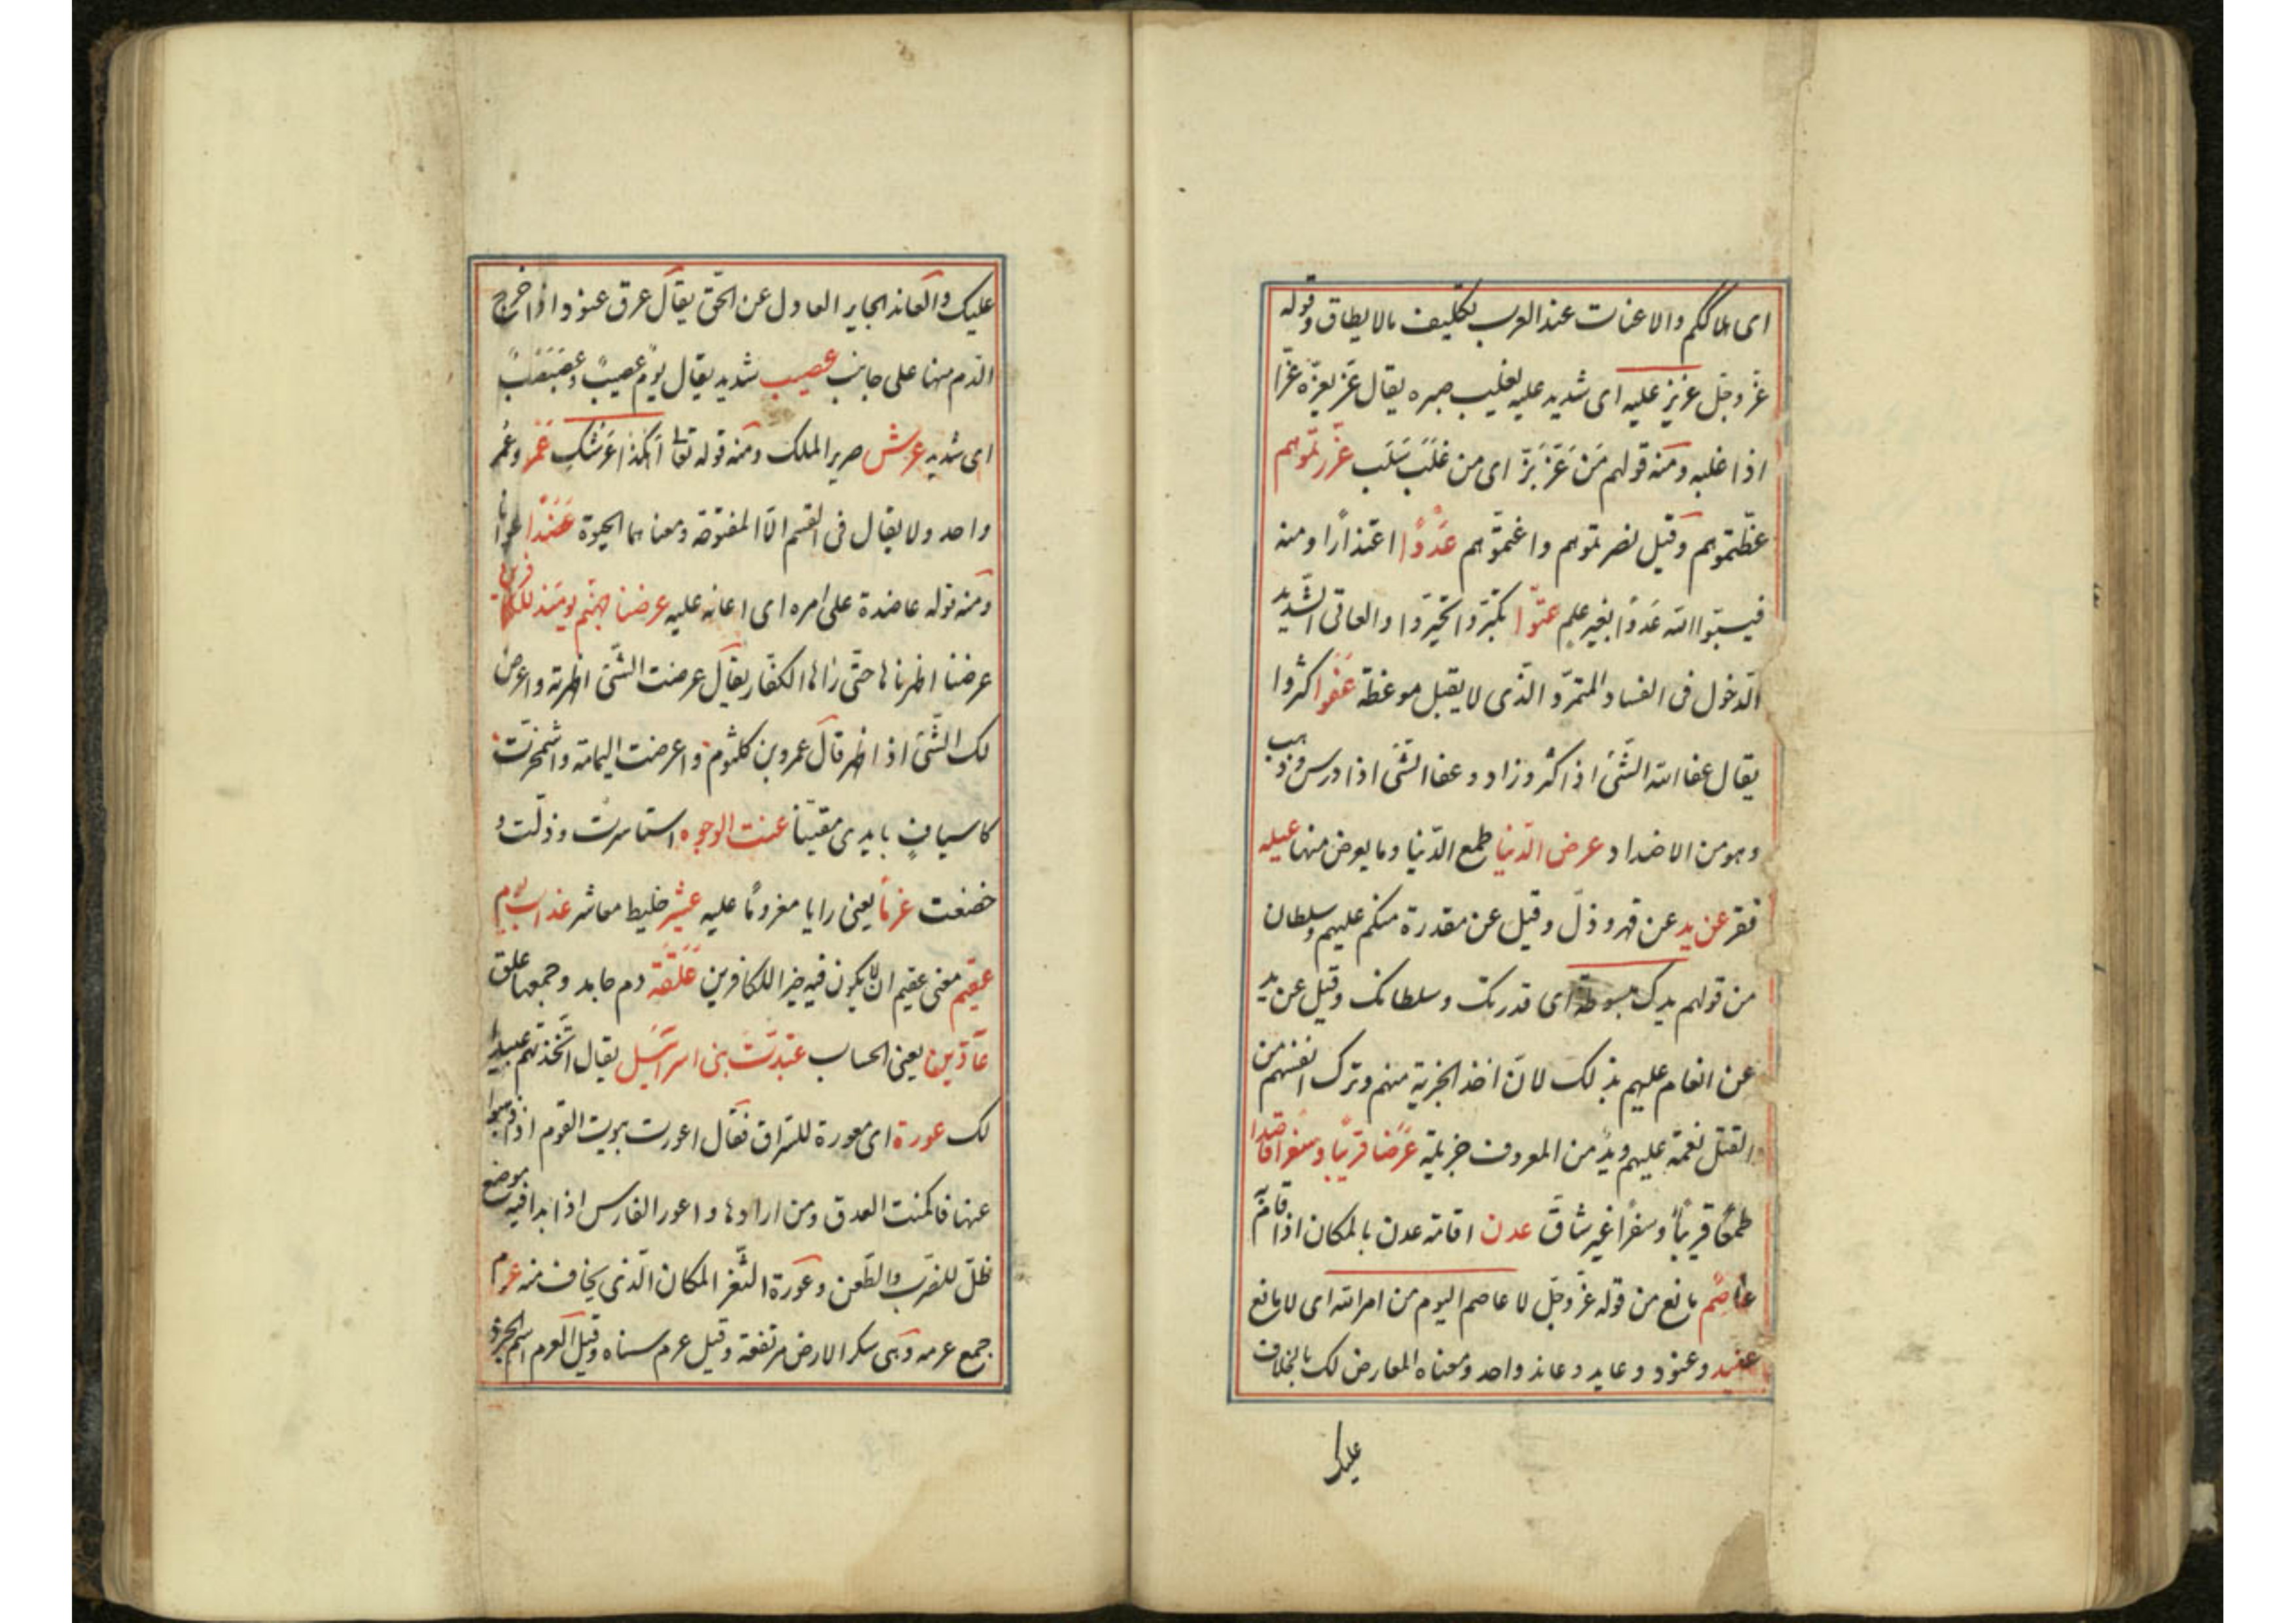 ای اهلككم والاعنات عند العرب تكليف مالا يطاق وقوله
عزّ وجلّ عزيز عليه ای شديد عليه يغلب صبره يقال عزّ يعزّه عزّا
اذا غلبه ومنه قولهم مَن عَزّ بَزّ ای من غَلَبَ سَلَب عزّرتموهم
عظّمتموهم وقيل نصرتموهم واعنتموهم عَدْوًا اعتذارًا ومنه
فيسبّوا الله عَدْوًا بغير علم عتوّا تكبّروا وتجبّروا والعاتی الشديد
الدّخول فی الفساد والمتمرّد الّذی لا يقبل موعظة عَفَوا كثروا
يقال عفا الله الشّیء اذا كثر وزاد وعفا الشّیء اذا درس وذهب
وهو من الاضداد عرض الدّنيا طمع الدّنيا وما يعرض منها عيلة
فقر عن يد عن قهر وذلّ وقيل عن مقدرة منكم عليهم وسلطان
من قولهم يدك مبسوطة ای قدرتك وسلطانك وقيل عن يد
عن انعام عليهم بذلك لانّ اخذ الجزية منهم وترك انفسهم من
القتل نعمة عليهم ويدٌ من المعروف جزيلة عَرَضًا قريبًا وسفرًا قاصدا
طمعًا قريبًا وسفرًا غير شاقّ عدن اقامة عدن بالمكان اذا اقام به
عاصم مانع من قوله عزّ وجلّ لا عاصم اليوم من امر الله ای لا مانع
عنيد وعنود وعايد وعاند واحد ومعناه المعارض لك بالخلاف
عليك
عليك والعاند الجاير العادل عن الحق يقال عرق عنود اذا خرج
الدّم منها علی جانب عصيب شديد يقال يوم عصيب وعَصَبْصَبٌ
ای شديد عرش سرير الملك ومنه قوله تعالی أهكذا عَرْشُكِ عَمْر وعُمْر
واحد ولا يقال فی القسم الّا المفتوحة ومعناهما الحيوة عَضُدًا اعوانا
ومنه قوله عاضدة علی امره ای اعانه عليه عرضنا جهنّم يومئذ للكافرين
عرضنا اظهرناها حتّی رأها الكفّار يقال عرضت الشّیء اظهرته واعرض
لك الشّیء اذا اظهر قال عمرو بن كلثوم واعرضت اليمامة واشمخرّت
كاسيافٍ بايدی مصلتينا عنت الوجوه استأسرت وذلّت و
خضعت عزمًا يعنی رايا معزومًا عليه عشير خليط معاشر عذاب يوم
عقيم معنی عقيم ان لا يكون فيه خيرا للكافرين عَلَقَة دم جامد وجمعها علق
عادّين يعنی الحساب عبّدتَ بنی اسرائيل يقال اتّخذتهم عبيدًا
لك عورة ای معورة للسّراق فقال اعورت بيوت القوم اذا ذهبوا
عنها فامكنت العدوّ ومن ارادها واعور الفارس اذا بدا فيه موضع
خلل للضرب والطّعن وعورة الثّغر المكان الّذی يخاف منه عرم
جمع عرمة وهی سكر الارض مرتفعة وقيل عرم مسناه وقيل العرم اسم الجرذ